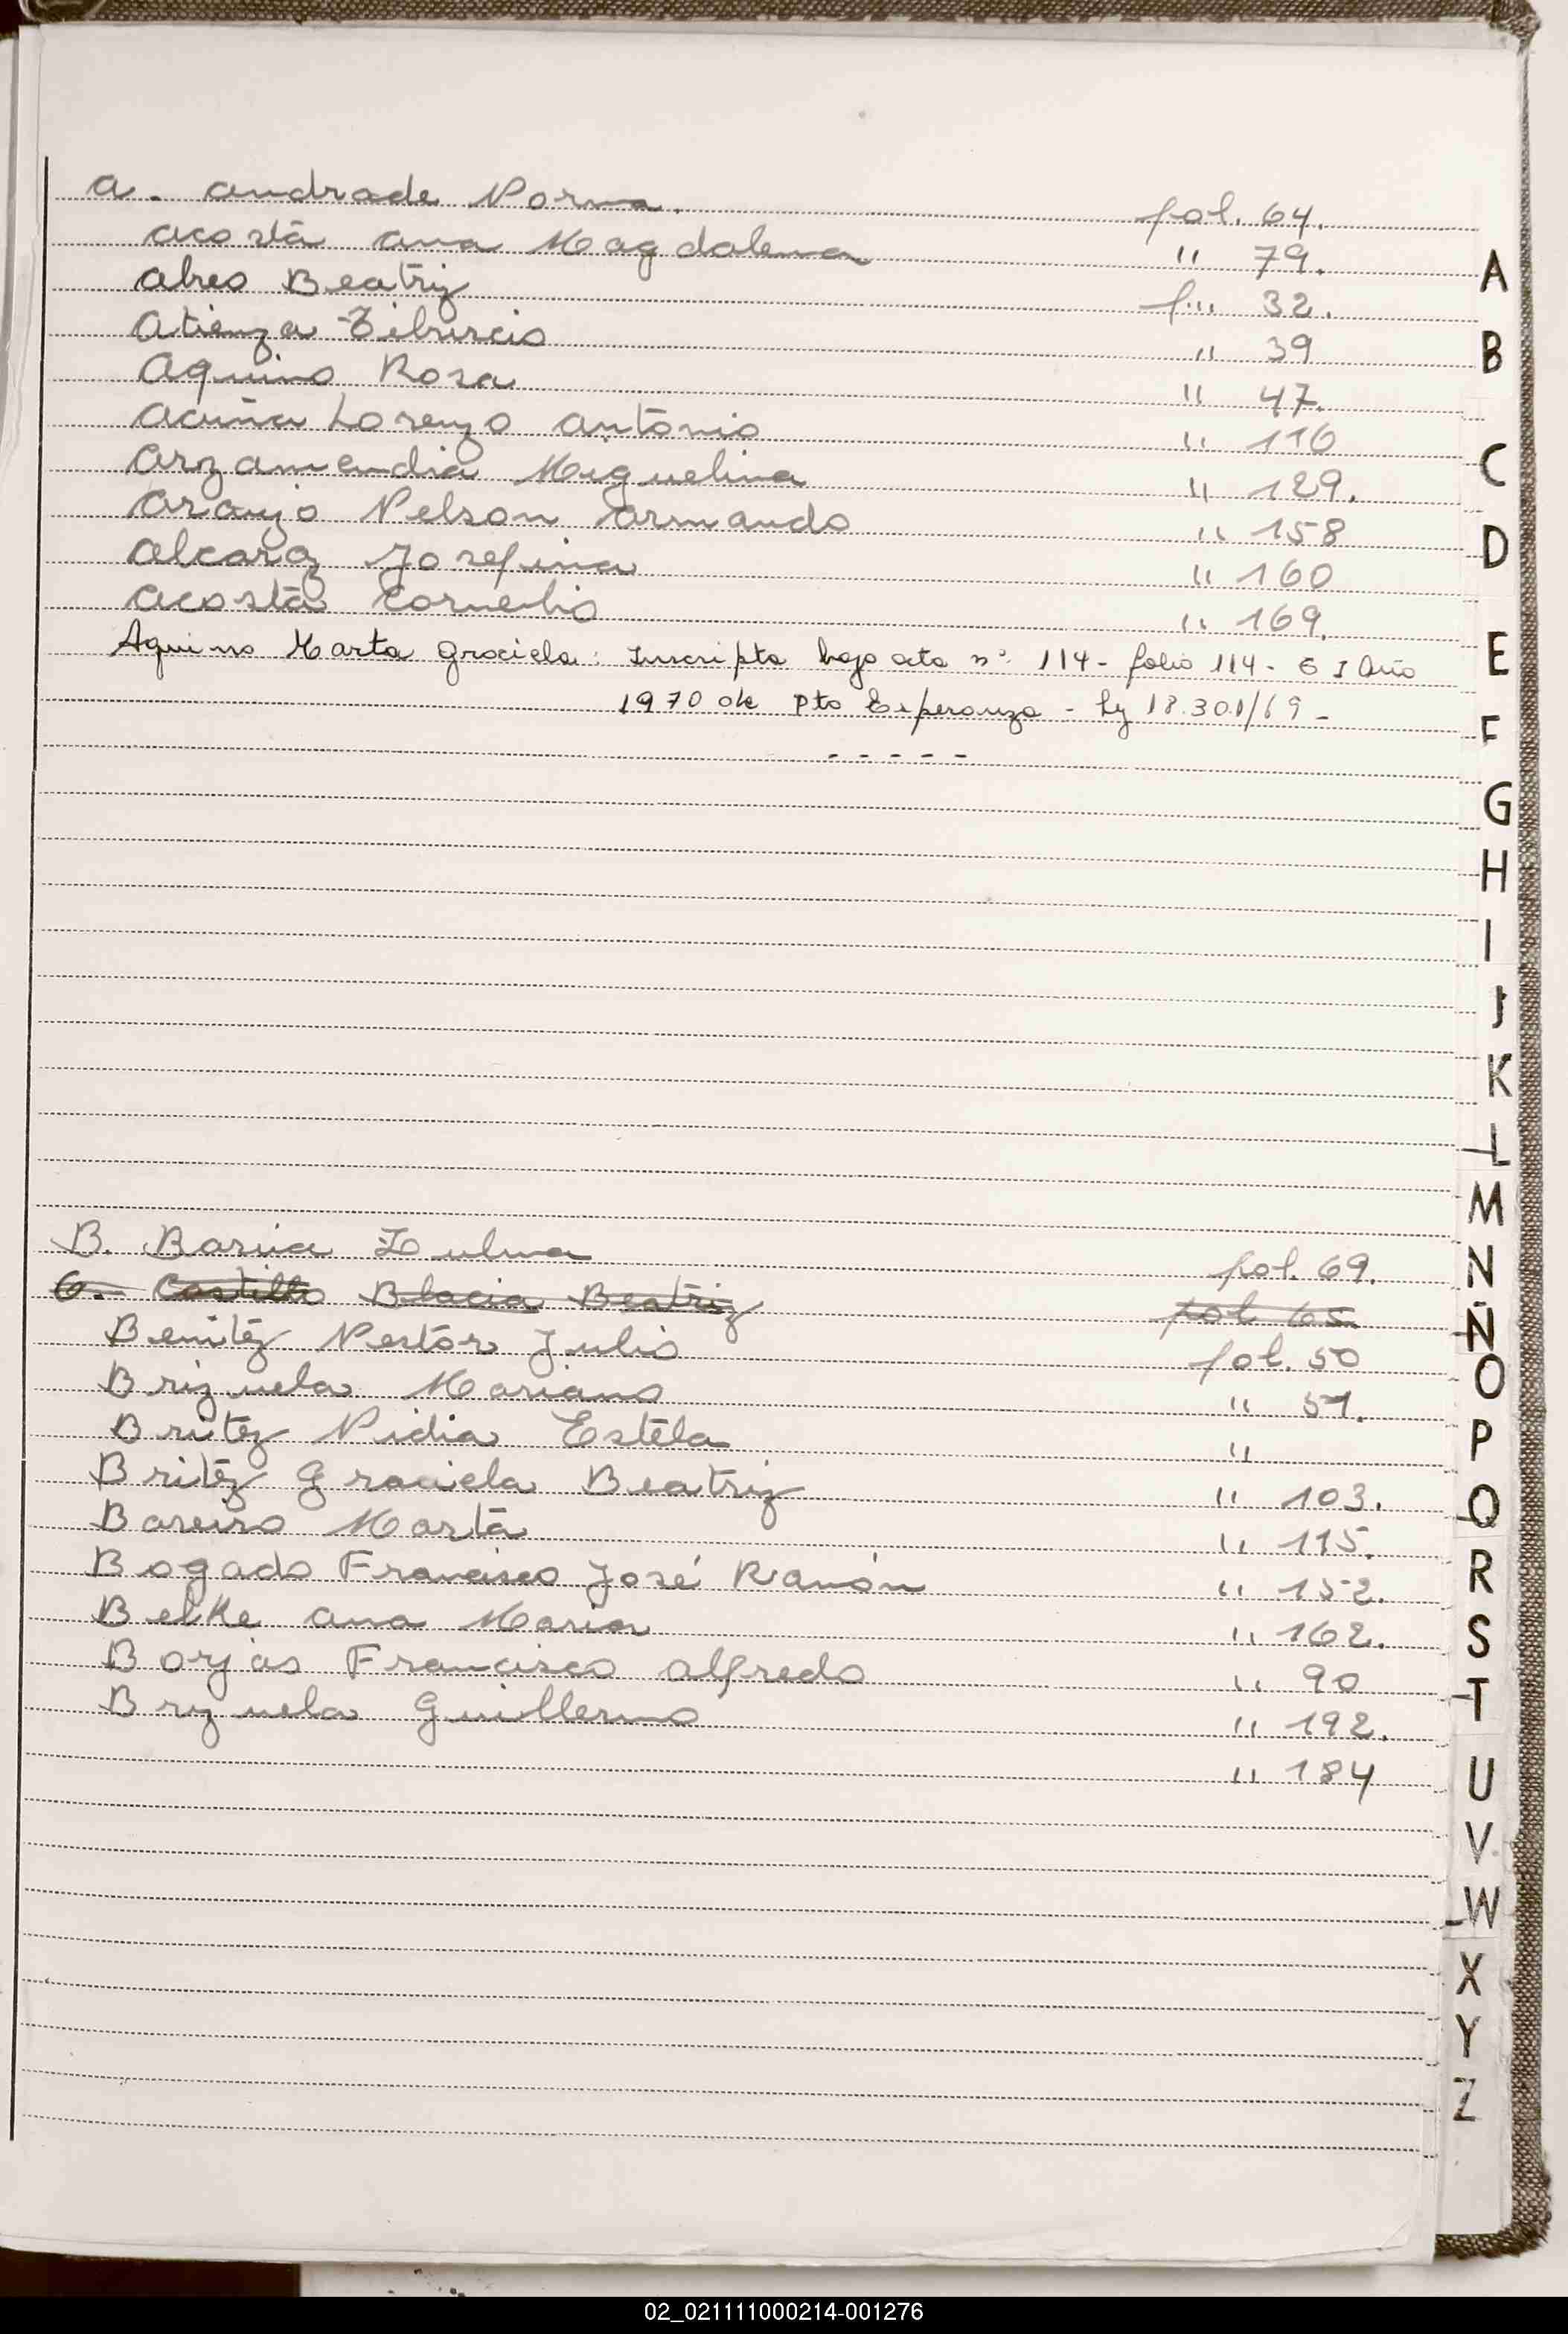 a. Andrade Norma. fol. 64.
Acosta Ana Magdalena " 79.
Abreo Beatriz f... 32.
Atienza Tiburcio " 39
Aquino Rosa " 47.
Acuña Lorenzo Antonio " 116
Arzamendia Miguelina " 129.
Araujo Nelson Armando " 158
Alcaraz Josefina " 160
Acosta Cornelio " 169.
Aquino Marta Graciela: Inscripta bajo acta nº 114 - folio 114 - I Año
1970 de Pto Esperanza - Ley 18.301/69 -
- - - - -
B. Barúa Zulma fol. 69.
C. Castillo Blacia Beatriz fol 65
Benitez Nestor Julio fol. 50
Brizuela Mariano " 51.
Britez Nidia Estela "
Britez Graciela Beatriz " 103.
Bareiro Marta " 115.
Bogado Francisco José Ramón " 152.
Belke Ana Maria " 162.
Borjas Francisco Alfredo " 90
Brizuela Guillermo " 192.
" 184
A
B
C
D
E
F
G
H
I
J
K
L
M
N
Ñ
O
P
Q
R
S
T
U
V
W
X
Y
Z
02_021111000214-001276